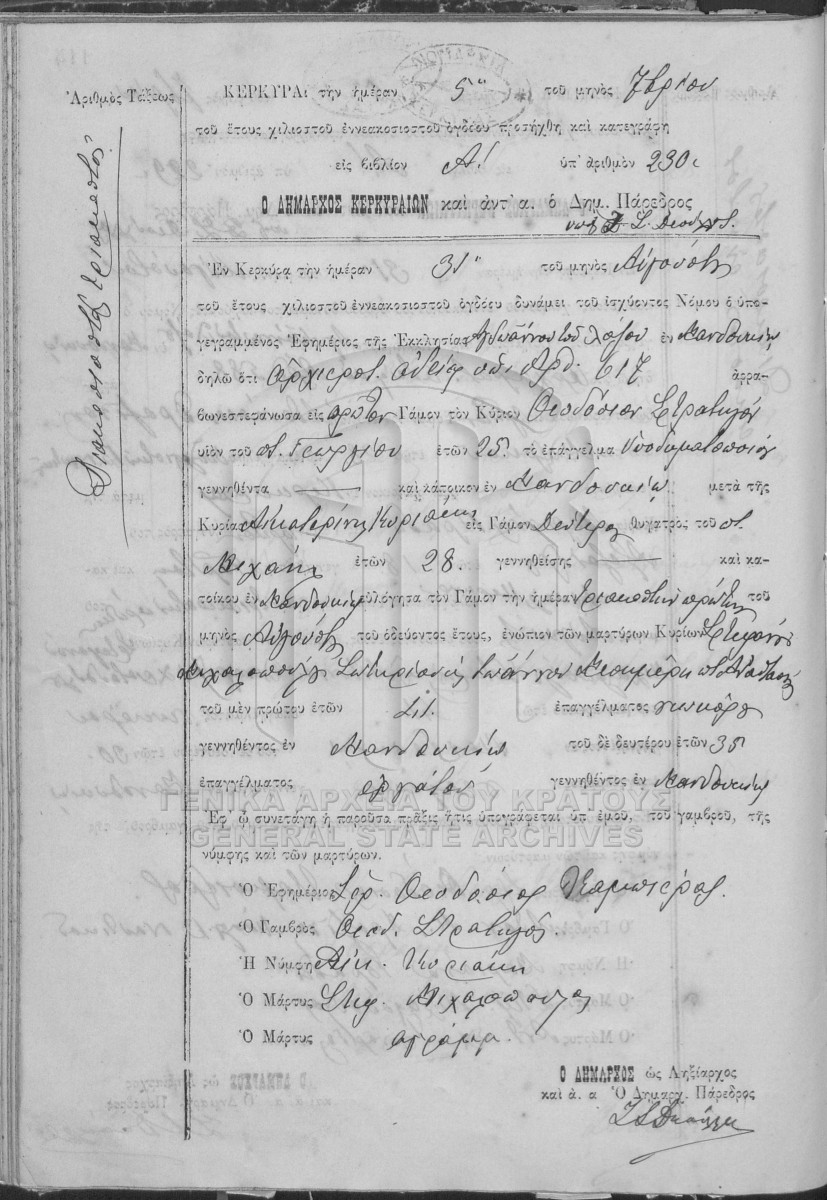 Ἀριθμὸς Τάξεως
Διακοσιοστὴ τριακοστὴ
ΚΕΡΚΥΡΑ: τὴν ἡμέραν 5η τοῦ μηνὸς 7βρίου
τοῦ ἔτους χιλιοστοῦ ἐννεακοσιοστοῦ ὀγδόου προσήχθη καὶ κατεγράφη
εἰς βιβλίον Α! ὑπ' ἀριθμὸν 230
Ὁ ΔΗΜΑΡΧΟΣ ΚΕΡΚΥΡΑΙΩΝ καὶ ἀντ' α. ὁ Δημ. Πάρεδρος
Ἐν Κερκύρᾳ τὴν ἡμέραν 31η τοῦ μηνὸς Αὐγούστου
τοῦ ἔτους χιλιοστοῦ ἐννεακοσιοστοῦ ὀγδόου δυνάμει τοῦ ἰσχύοντος Νόμου ὁ ὑπο-
γεγραμμένος Ἐφημέριος τῆς Ἐκκλησίας Ἁγ. Ἰωάννου τοῦ Λάζου ἐν Μανδουκίῳ
δηλῶ ὅτι ἀρχιερατ. ἀδείᾳ ὑπ' Ἀρθ. 617 ἀρρα-
βωνεστεφάνωσα εἰς πρῶτον Γάμον τὸν Κύριον Θεοδόσιον Στρατηγόν
υἱὸν τοῦ π. Γεωργίου ἐτῶν 25 τὸ ἐπάγγελμα Ὑποδηματοποιόν
γεννηθέντα — καὶ κάτοικον ἐν Μανδουκίῳ μετὰ τῆς
Κυρίας Αἰκατερίνης Κυριάκη εἰς Γάμον Δεύτερον θυγατρὸς τοῦ π.
Μιχαήλ ἐτῶν 28. γεννηθείσης — καὶ κα-
τοίκου ἐν Μανδουκίῳ εὐλόγησα τὸν Γάμον τὴν ἡμέραν τριακοστὴν πρώτην τοῦ
μηνὸς Αὐγούστου τοῦ ὁδεύοντος ἔτους, ἐνώπιον τῶν μαρτύρων Κυρίων Στεφάνου
Μιχαλοπούλου Σωτηρίου καὶ Ἰωάννου
τοῦ μὲν πρώτου ἐτῶν ἐπαγγέλματος
γεννηθέντος ἐν Μανδουκίῳ τοῦ δὲ δευτέρου ἐτῶν 35
ἐπαγγέλματος ἐργάτου γεννηθέντος ἐν Μανδουκίῳ
ΓΕΝΙΚΑ ΑΡΧΕΙΑ ΤΟΥ ΚΡΑΤΟΥΣ
GENERAL STATE ARCHIVES
Ἐφ' ᾧ συνετάγη ἡ παροῦσα πρᾶξις ἥτις ὑπογράφεται ὑπ' ἐμοῦ, τοῦ γαμβροῦ, τῆς
νύμφης καὶ τῶν μαρτύρων.
Ὁ Ἐφημέριος Ἱερ. Θεοδόσιος Καμπιέρος.
Ὁ Γαμβρὸς Θεοδ. Στρατηγός.
Ἡ Νύμφη Αἰκ. Κυριάκη
Ὁ Μάρτυς Στεφ. Μιχαλόπουλος
Ὁ Μάρτυς ἀγράμμ.
Ὁ ΔΗΜΑΡΧΟΣ ὡς Ληξίαρχος
καὶ ἀ. α Ὁ Δημαρχ. Πάρεδρος